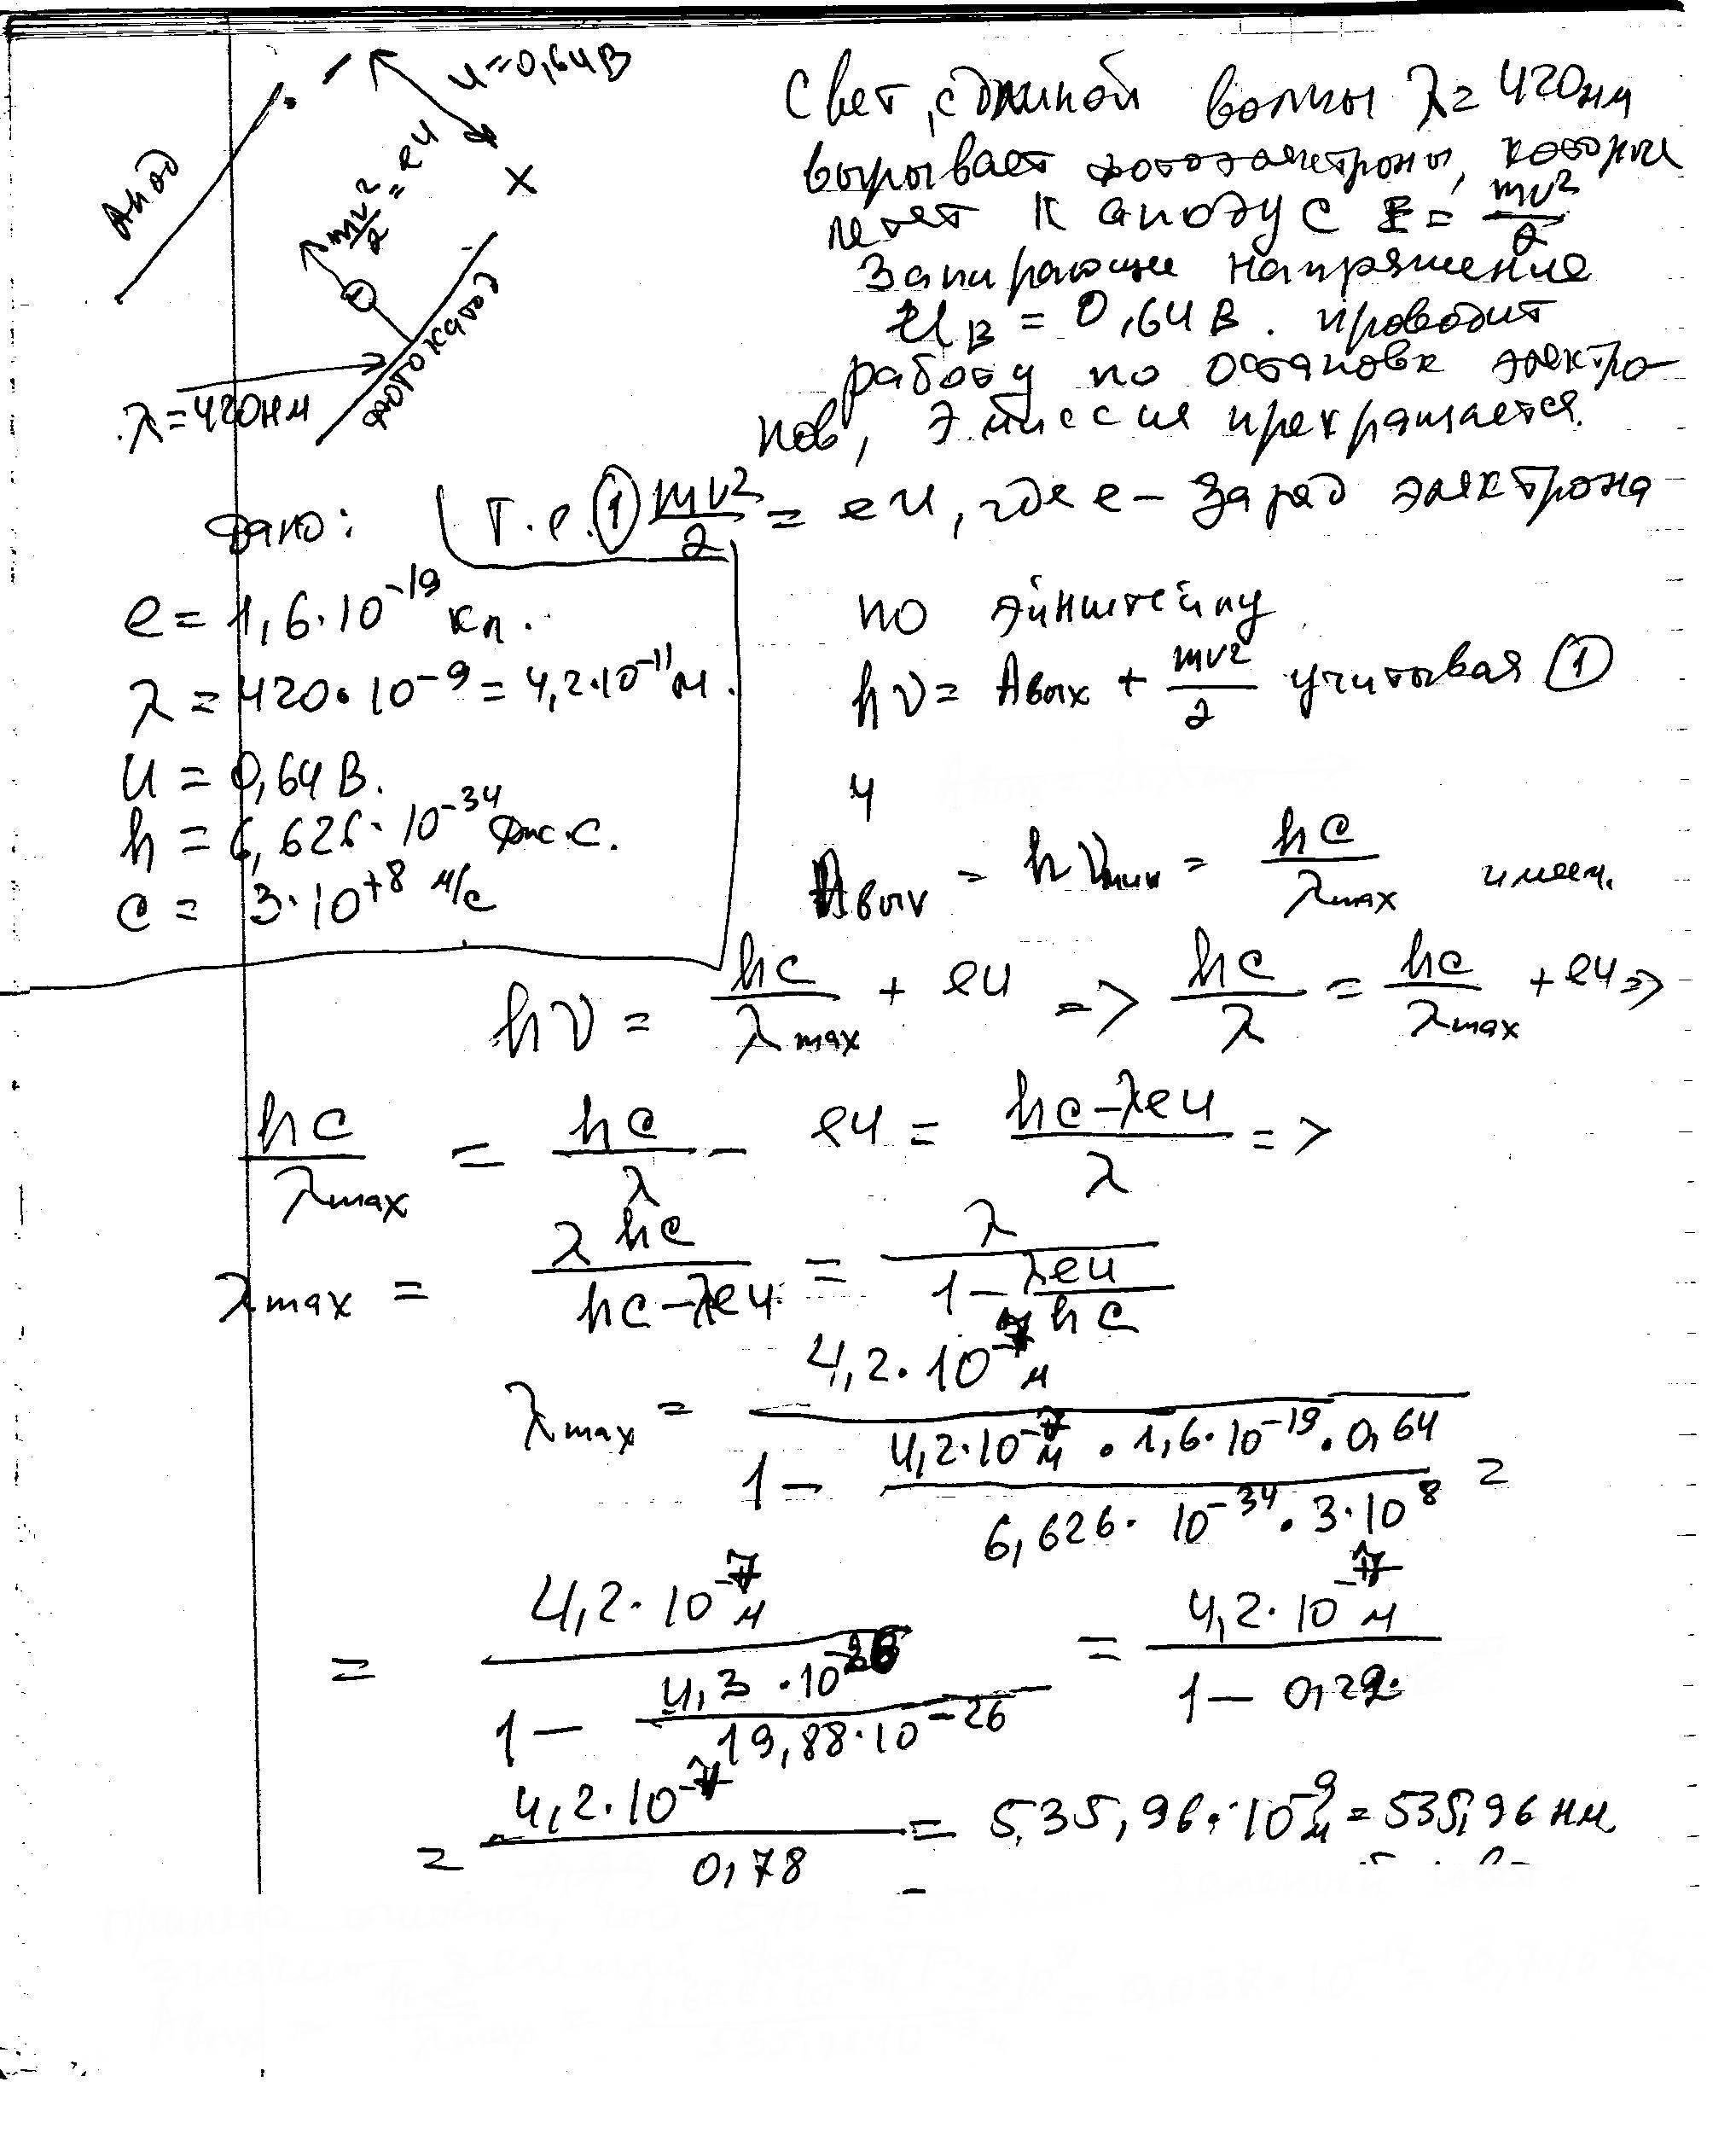 Анод
U=0,64В
mv²/2 = eU
×
фотокатод
λ=420нм
Свет, с длиной волны λ=420нм
вырывает фотоэлектроны, которые
летят к аноду с E = mv²/2
Запирающее напряжение
U_В = 0,64 В. проводит
работу по остановке электро-
нов, эмиссия прекращается.
т.е. ① mv²/2 = eU, где e – заряд электрона
Дано:
e = 1,6·10⁻¹⁹ Кл.
λ = 420·10⁻⁹ = 4,2·10⁻¹¹ м.
U = 0,64 В.
h = 6,626·10⁻³⁴ Дж·с.
c = 3·10⁺⁸ м/с
по Эйнштейну
hν = Aвых + mv²/2 учитывая ①
и
Aвых = hνмин = hc/λmax имеем.
hν = hc/λmax + eU => hc/λ = hc/λmax + eU =>
hc/λmax = hc/λ – eU = (hc–λeU)/λ =>
λmax = λhc/(hc–λeU) = λ/(1–λeU/hc)
λmax = 4,2·10⁻⁷м/(1 – (4,2·10⁻⁷м·1,6·10⁻¹⁹·0,64)/(6,626·10⁻³⁴·3·10⁸)) =
= 4,2·10⁻⁷м/(1 – 4,3·10⁻²⁶/19,88·10⁻²⁶) = 4,2·10⁻⁷м/(1 – 0,22)
= 4,2·10⁻⁷/0,78 = 535,96·10⁻⁹м = 535,96 нм